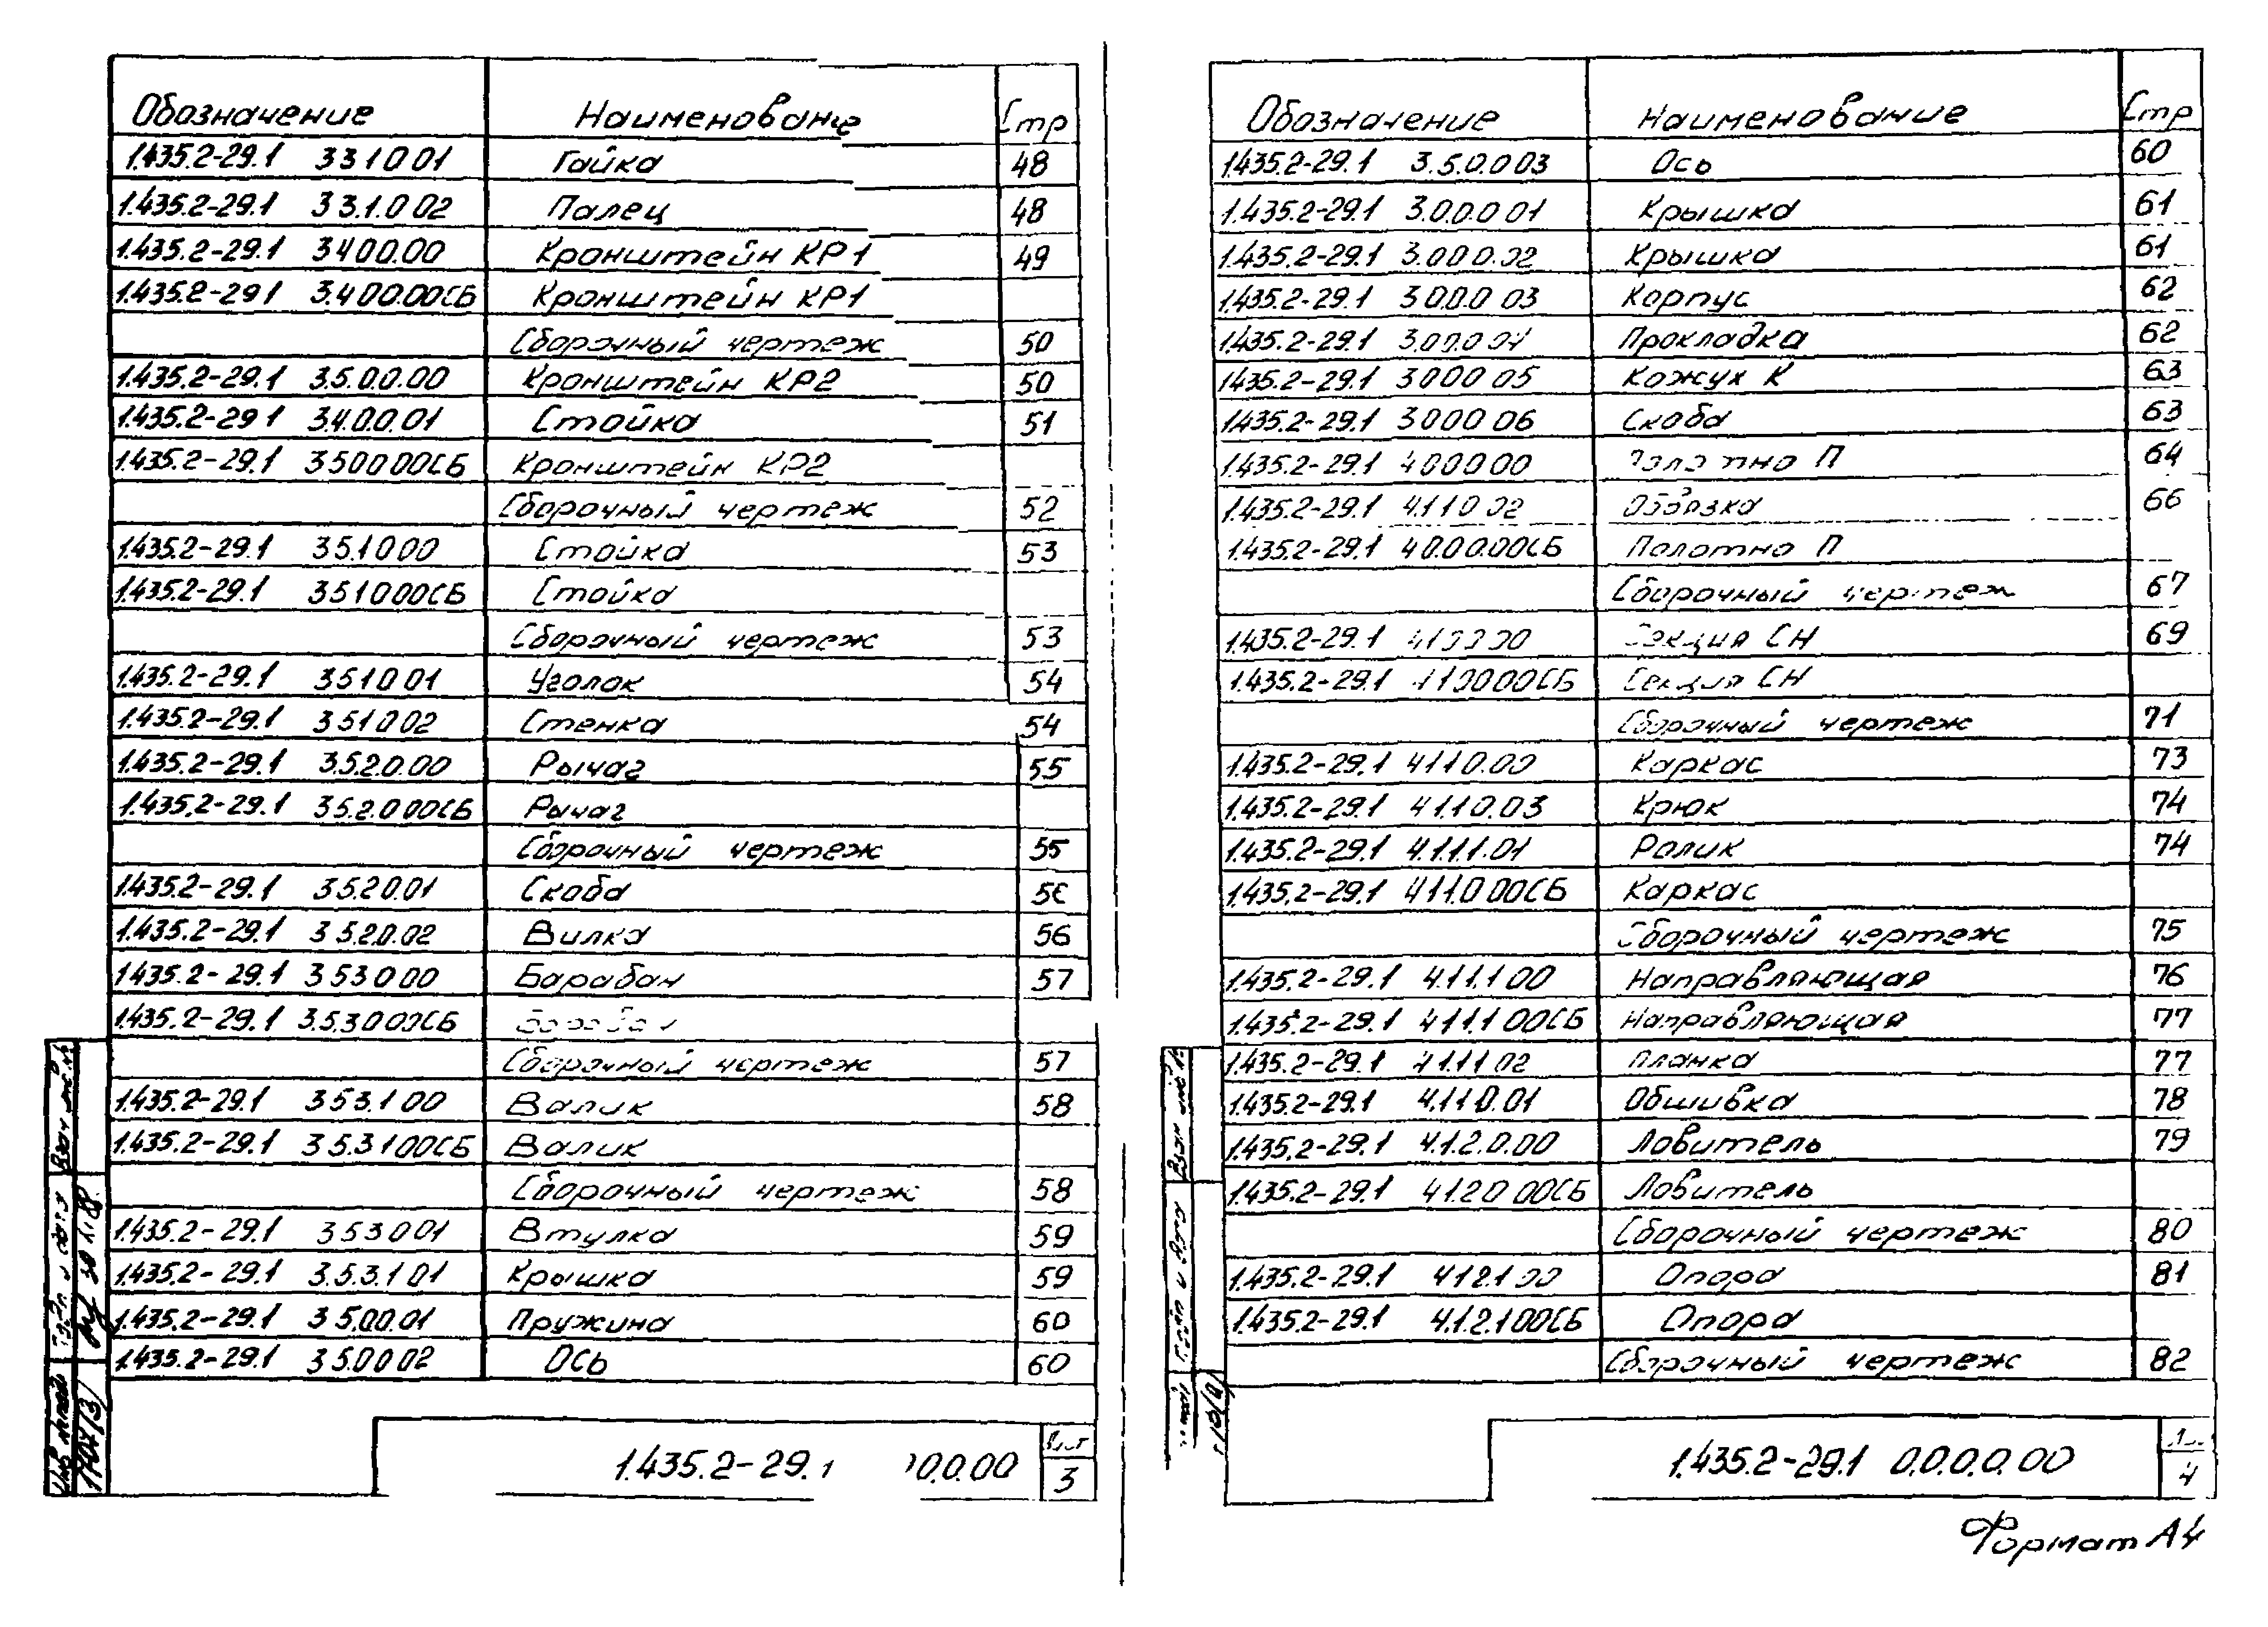 Обозначение Наименование Стр
1.435.2-29.1 3 3 1 0 01 Гайка 48
1.435.2-29.1 3 3.1.0 02 Палец 48
1.435.2-29.1 3 4 0 0.00 Кронштейн КР1 49
1.435.2-29 1 3.4 0 0.00СБ Кронштейн КР1
Сборочный чертеж 50
1.435.2-29.1 3.5.0 0.00 Кронштейн КР2 50
1.435.2-29 1 3.4.0.0.01 Стойка 51
1.435.2-29.1 3 5 0 0 00СБ Кронштейн КР2
Сборочный чертеж 52
1.435.2-29.1 3 5.1 0 00 Стойка 53
1.435.2-29.1 3 5 1 0 00СБ Стойка
Сборочный чертеж 53
1.435.2-29.1 3 5 1 0 01 Уголок 54
1.435.2-29.1 3 5 1 0 02 Стенка 54
1.435.2-29.1 3.5.2.0.00 Рычаг 55
1.435.2-29.1 3 5.2.0 00СБ Рычаг
Сборочный чертеж 55
1.435.2-29.1 3 5.2 0.01 Скоба 56
1.435.2-29.1 3 5.2.0.02 Вилка 56
1.435.2-29.1 3 5 3 0 00 Барабан 57
1.435.2-29.1 3.5.3 0 00СБ Барабан
Сборочный чертеж 57
1.435.2-29.1 3 5 3.1 00 Валик 58
1.435.2-29.1 3 5.3 1 00СБ Валик
Сборочный чертеж 58
1.435.2-29.1 3 5 3 0 01 Втулка 59
1.435.2-29.1 3.5.3.1 01 Крышка 59
1.435.2-29.1 3 5.0.0.01 Пружина 60
1.435.2-29.1 3 5.0 0 02 Ось 60
1.435.2-29.1 0.0.00 Лист
3
Взам инв.
Подп и дата
Инв № подл
Обозначение Наименование Стр
1.435.2-29.1 3.5.0.0 03 Ось 60
1.435.2-29.1 3.0.0.0 01 Крышка 61
1.435.2-29.1 3.0 0 0.02 Крышка 61
1.435.2-29.1 3 0 0.0 03 Корпус 62
1.435.2-29.1 3.0 0.0 04 Прокладка 62
1.435.2-29.1 3 0 0 0 05 Кожух К 63
1.435.2-29.1 3 0 0 0 06 Скоба 63
1.435.2-29.1 4 0 0 0 00 Полотно П 64
1.435.2-29.1 4.1 1 0 02 Обвязка 66
1.435.2-29.1 4 0.0 0.00СБ Полотно П
Сборочный чертеж 67
1.435.2-29.1 4 1 0 0 00 Секция СН 69
1.435.2-29.1 4 1 0 0 00СБ Секция СН
Сборочный чертеж 71
1.435.2-29.1 4 1 1 0.00 Каркас 73
1.435.2-29.1 4.1 1.0.03 Крюк 74
1.435.2-29.1 4.1.1.1.01 Ролик 74
1.435.2-29.1 4 1 1.0 00СБ Каркас
Сборочный чертеж 75
1.435.2-29.1 4.1 1.1 00 Направляющая 76
1.435.2-29.1 4 1 1.1 00СБ Направляющая 77
1.435.2-29.1 4 1 1 1 02 Планка 77
1.435.2-29.1 4.1 1 0.01 Обшивка 78
1.435.2-29.1 4.1.2.0.00 Ловитель 79
1.435.2-29.1 4 1.2 0 00СБ Ловитель
Сборочный чертеж 80
1.435.2-29.1 4 1 2.1 00 Опора 81
1.435.2-29.1 4.1.2.1 00СБ Опора
Сборочный чертеж 82
1.435.2-29.1 0.0.0.0.00
4
Формат А4